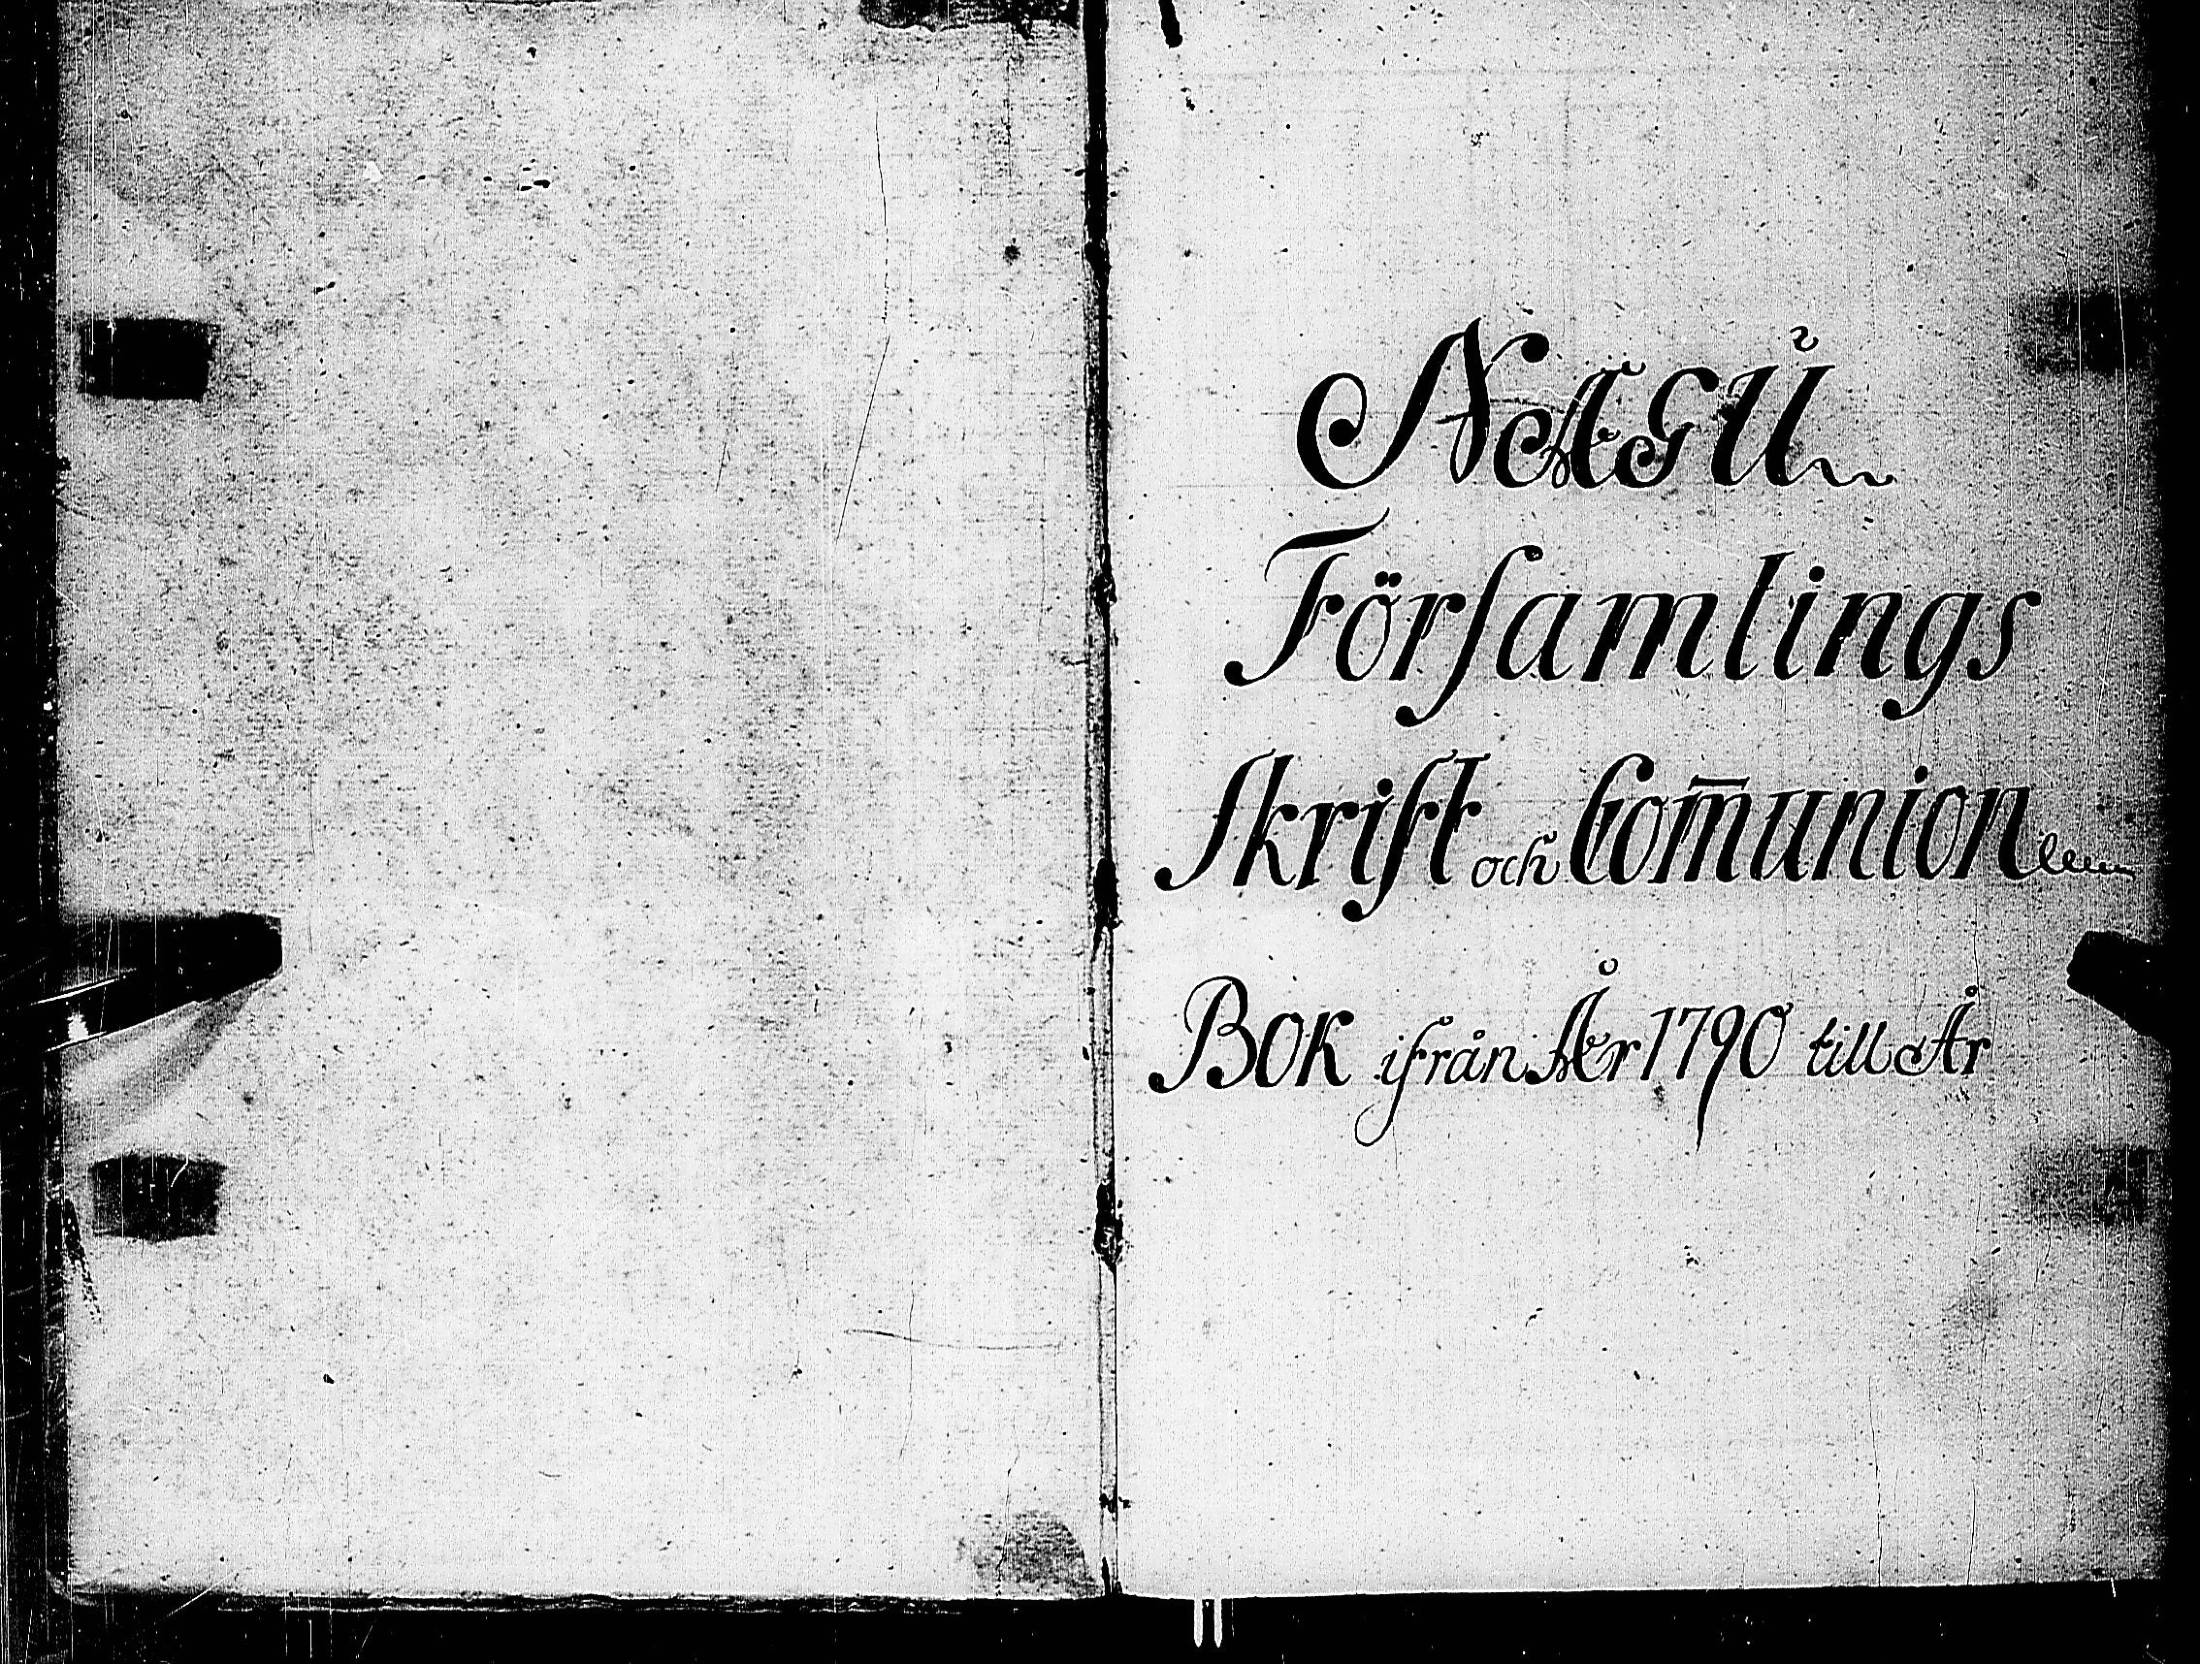 NAGŬ
Förſamlings
Skrift och Com̅union
Bok ifrån År 1790 till År